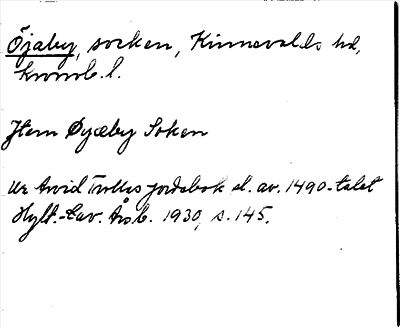 Öjaby, socken, Kinnevalds hd,
kronob. l.
Jtem Øyæby Soken
Ur Arvid Trolles jordebok sl. av. 1490-talet
Hylt.-Cav. Årsb. 1930, s. 145.